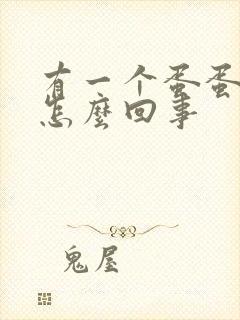 有一个蛋蛋
怎麽回事
鬼屋